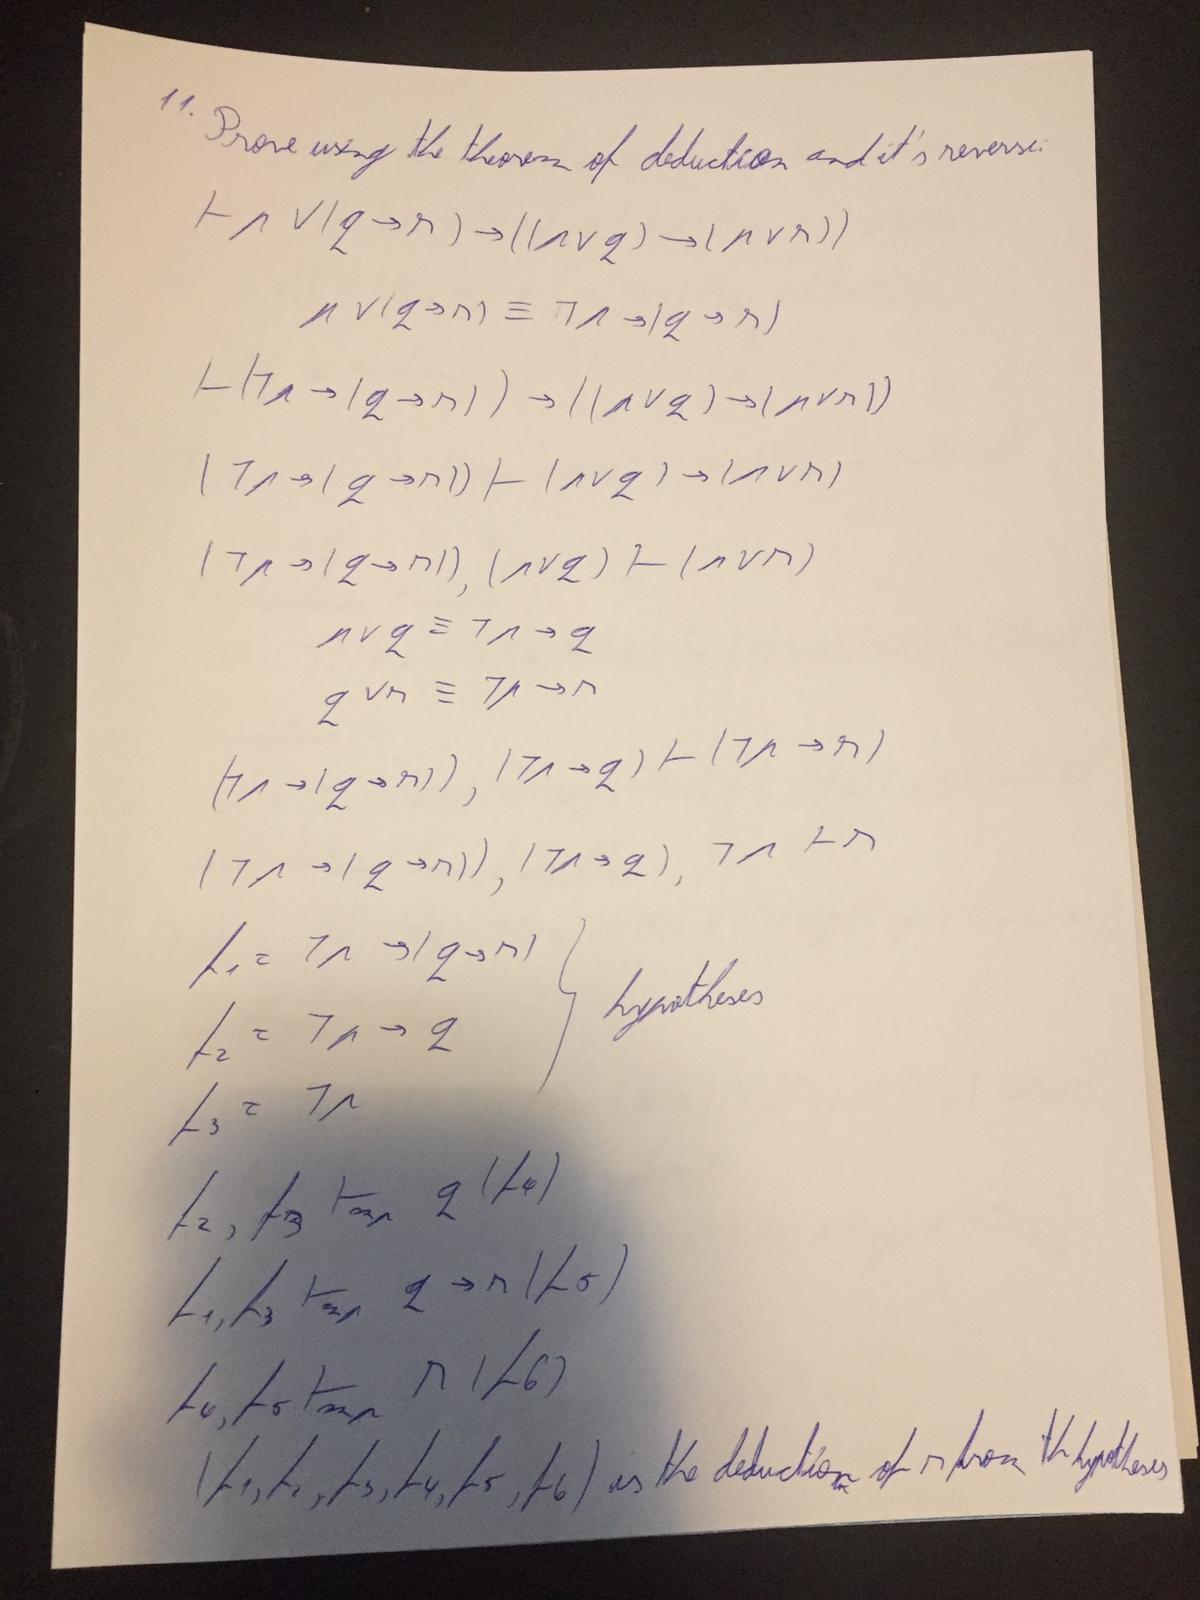 11. Prove using the theorem of deduction and it's reverse:
⊢ p ∨ (q → r) → ((p ∨ q) → (p ∨ r))
p ∨ (q → r) ≡ ¬p → (q → r)
⊢ (¬p → (q → r)) → ((p ∨ q) → (p ∨ r))
(¬p → (q → r)) ⊢ (p ∨ q) → (p ∨ r)
(¬p → (q → r)), (p ∨ q) ⊢ (p ∨ r)
p ∨ q ≡ ¬p → q
q ∨ r ≡ ¬p → r
(¬p → (q → r)), (¬p → q) ⊢ (¬p → r)
(¬p → (q → r)), (¬p → q), ¬p ⊢ r
f1 = ¬p → (q → r)
f2 = ¬p → q
hypotheses
f3 = ¬p
f2, f3 ⊢mp q (f4)
f1, f3 ⊢mp q → r (f5)
f4, f5 ⊢mp r (f6)
(f1, f2, f3, f4, f5, f6) is the deduction of r from the hypotheses